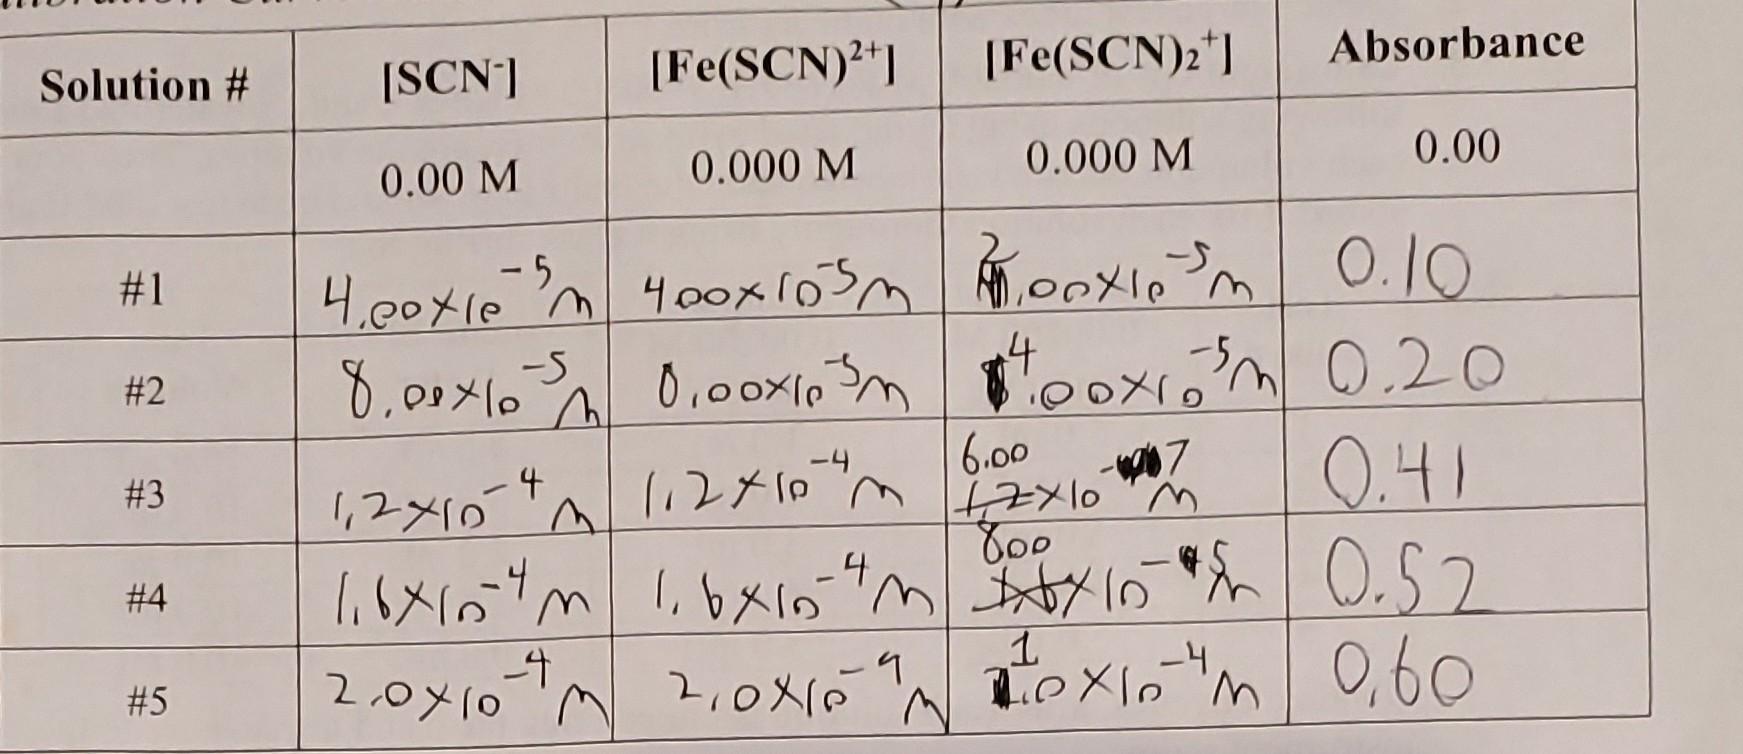 Solution # [SCN⁻] [Fe(SCN)²⁺] [Fe(SCN)₂⁺] Absorbance
0.00 M 0.000 M 0.000 M 0.00
#1 4.00×10⁻⁵ M 4.00×10⁻⁵ M 2.00×10⁻⁵ M 0.10
#2 8.00×10⁻⁵ M 0.00×10⁻⁵ M 4.00×10⁻⁵ M 0.20
6.00
#3 1.2×10⁻⁴ M 1.2×10⁻⁴ M 1.2×10⁻⁷ M 0.41
800
#4 1.6×10⁻⁴ M 1.6×10⁻⁴ M 1.6×10⁻⁵ M 0.52
#5 2.0×10⁻⁴ M 2.0×10⁻⁴ M 1.0×10⁻⁴ M 0.60